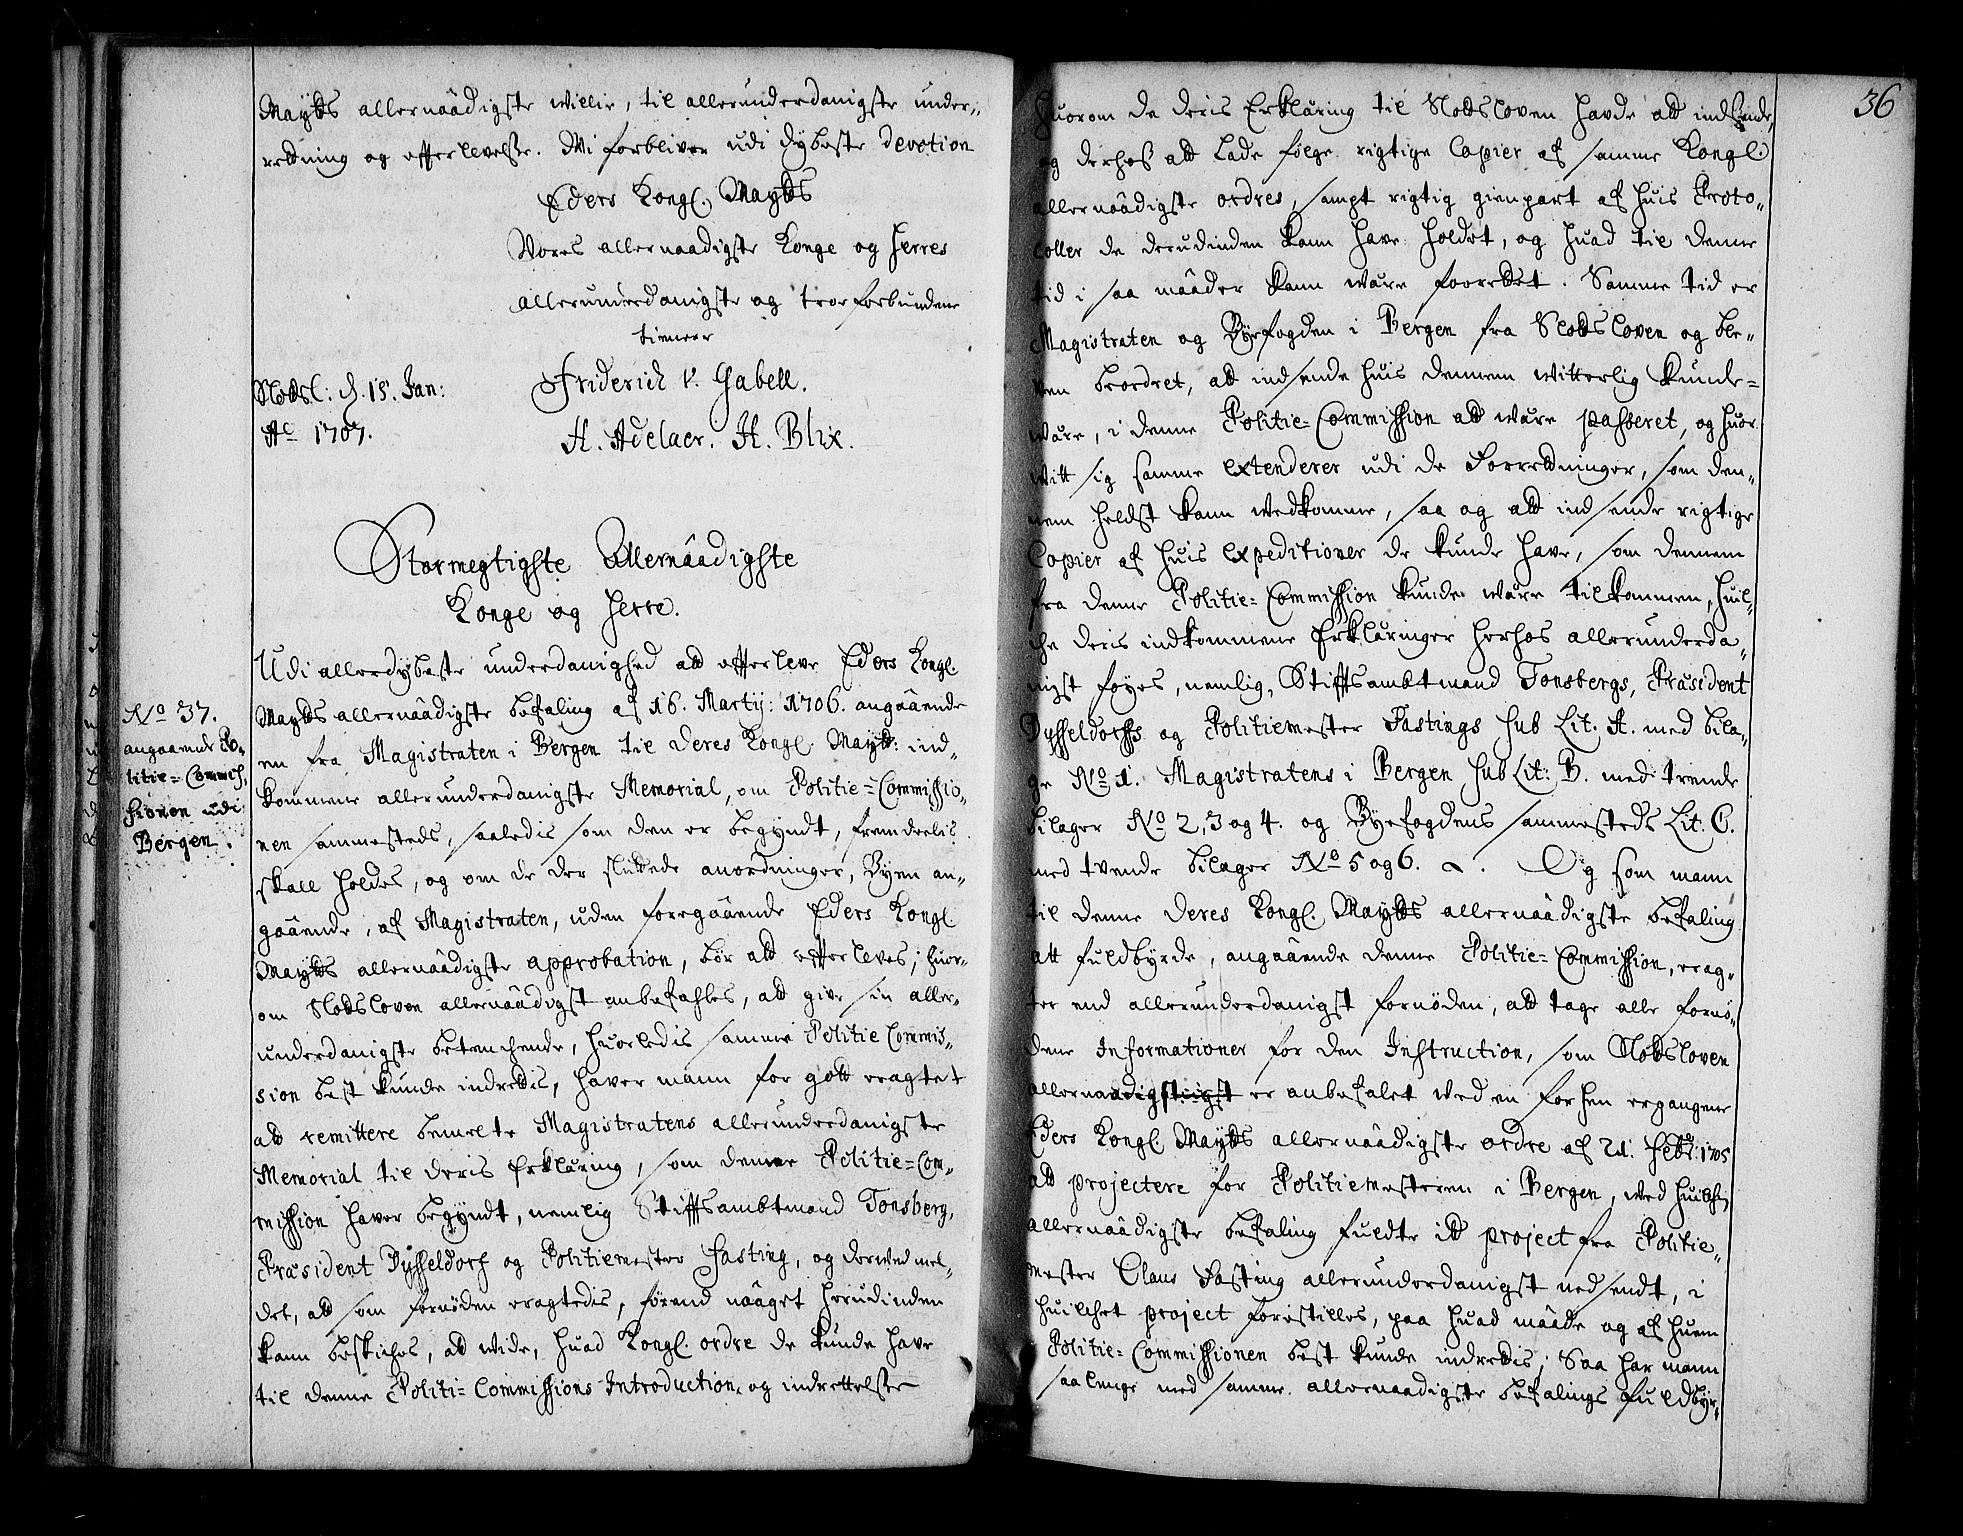 Maytts allernaadigste willie, til allerunderdanigste under-
retning og efterlevelse. Wi forbliver udi dybeste devotion
Eders Kongl. Maytts
Vores allernaadigste Konge og Herres
allerunderdanigste og troeforbundene
tienere
Slotsl: d. 15. Jan:
Friderich v. Gabell.
Ao 1707.
H. Adelaer. H. Blix.
Stormegtigste Allernaadigste
Konge og Herre.
No 37.
angaaende Po-
litie-Commis-
sionen udi
Bergen.
Udi allerdybeste underdanighed att efterleve Eders Kongl.
Maytts allernaadigste befaling af 16. Martij: 1706. angaaende
en fra Magistraten i Bergen til Deres Kongl. Maytt: ind-
kommene allerunderdanigste Memorial, om Politie-Commissio-
nen sammesteds, saaledis som den er begyndt, fremdeelis
skall holdes, og om de der sluttede anordninger, Byen an-
gaaende, af Magistraten, uden foregaaende Eders Kongl.
Maytts allernaadigste approbation, bør att efterleves; huor-
om Slotsloven allernaadigst anbefahles, att give sin aller-
underdanigste betenchende, huorledis samme Politie Commis-
sion best kunde indrettis, haver mann for gott eragtet
att remittere bemelte Magistratens allerunderdanigste
Memorial til deris Erklæring, som denne Politie-Com-
mission haver begyndt, nemlig Stiftsambtmand Tonsberg,
Præsident Dysseldorf og Politiemester Fasting, og derved mel-
det, att som fornøden eragtedis, førend naaget herudinden
kann beskiches, att wide, huad Kongl. ordre de kunde have
til denne Politi-Commissions Introduction, og indrettelse
36
huorom de deris Erklæring til Slotsloven havde att indsende,
og derhos att lade følge rigtige Copier af samme Kongl.
allernaadigste ordres, sampt rigtig gienpart af huis Proto-
coller de derudinden kann have holdet, og huad til denne
tid i saa maader kann være forrettet. Samme tid er
Magistraten og Byefogden i Bergen fra Slotsloven og ble-
ven beordret, att indsende huis dennem witterlig kunde
være, i denne Politie-Commission att være passeret, og huor
witt sig samme extenderer udi de Forretninger, som den-
nem heldst kann vedkomme, saa og att indsende rigtige
Copier af huis expeditioner de kunde have, som dennem
fra denne Politie-Commission kunde være tilkommen, huil-
che deris indkommene Erklæringer herhos allerunderda-
nigst føyes, nemlig, Stiftsambtmand Tonsbergs, Præsident
Dysseldorffs og Politiemester Fastings sub Lit. A. med bila-
ge No 1. Magistratens i Bergen sub Lit: B. med trende
bilager No 2, 3 og 4. og Byefogdens sammesteds Lit. C.
med tvende bilager No 5 og 6. Og som mann
til denne Deres Kongl. Maytts allernaadigste befaling
att fuldbyrde, angaaende denne Politie-Commission, erag-
ter end allerunderdanigst fornøden, att tage alle fornø-
dene Informationer for den Instruction, som Slotsloven
allernaadigst er anbefalet ved en forhen ergangene
Eders Kongl. Maytts allernaadigste ordre af 21. Febr: 1705
att projectere for Politiemesteren i Bergen, ved huilchen
allernaadigste befaling fuldte itt project fra Politie-
mester Claus Fasting allerunderdanigst nedsendt, i
huilchet project forestilles, paa huad maade og af huem
Politie-Commissionen best kunde indrettis; Saa har mann
saalenge med samme allernaadigste befalings fuldbyr-